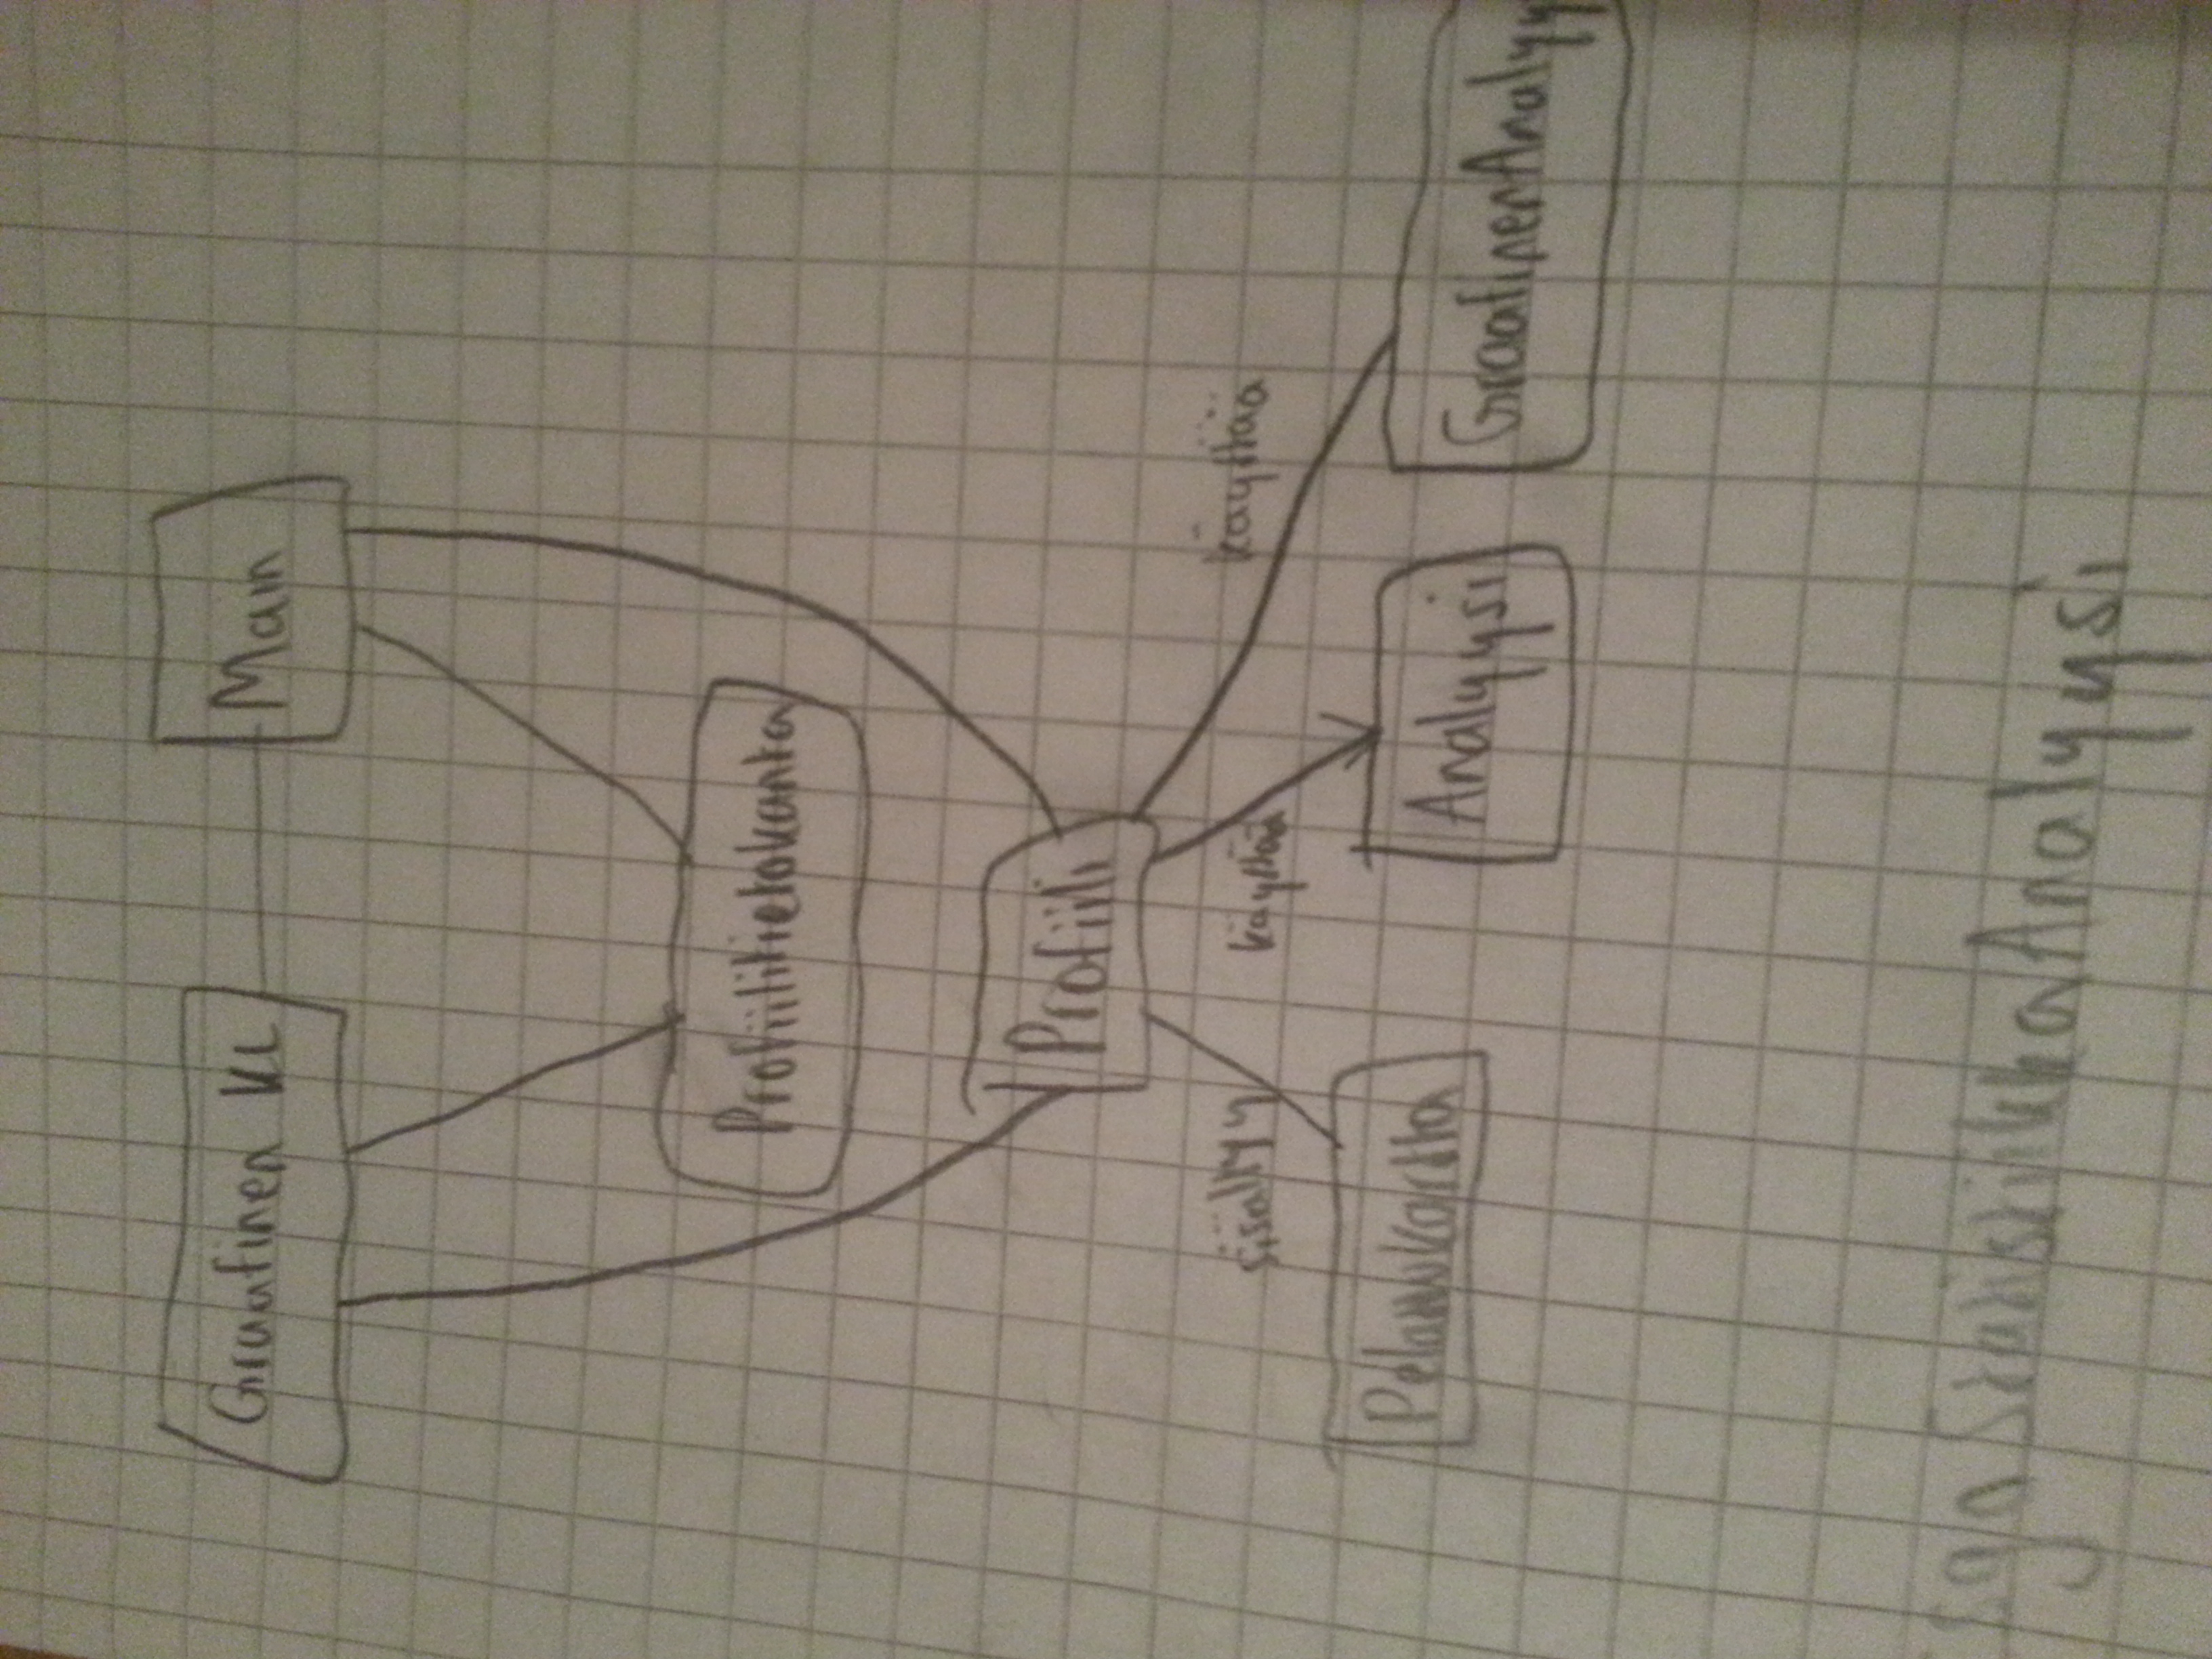 Graafinen KL
Main
Profiilitietokanta
Profiili
sisältyy
käyttää
käyttää
Analyysi
GraafinenAnalyy
StatistiikkaAnalyysi